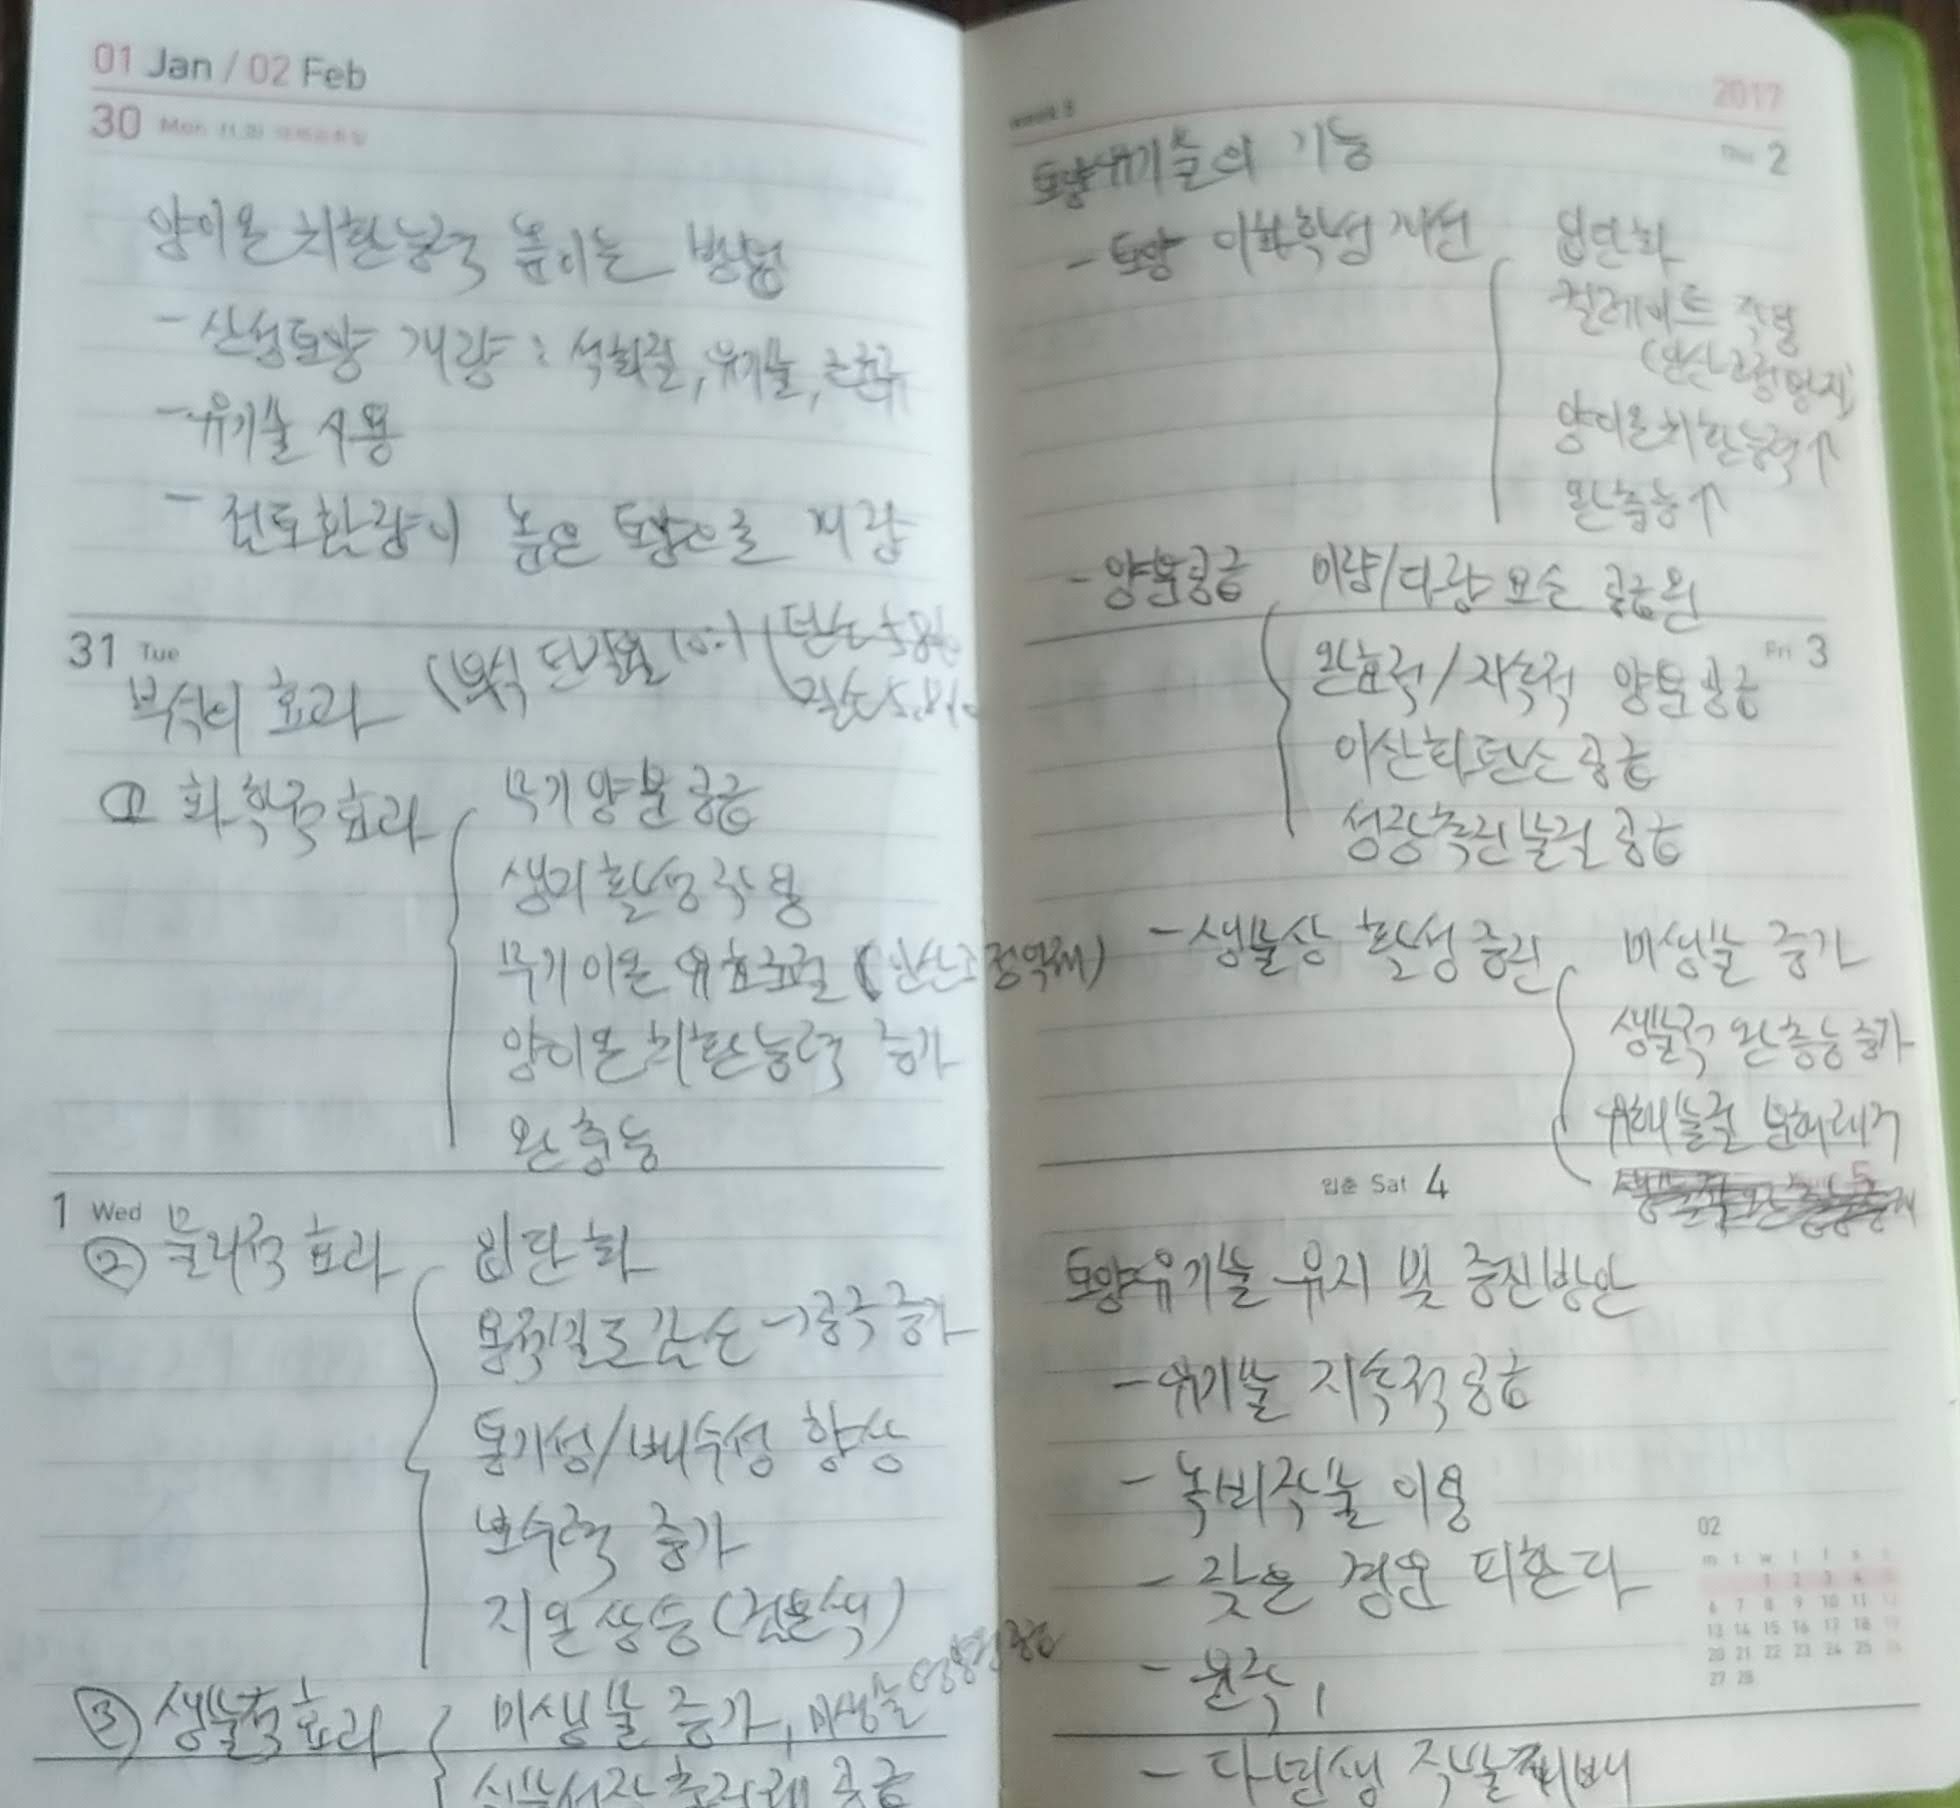 01 Jan / 02 Feb
30 Mon
양이온치환능력 높이는 방법
- 산성토양 개량 : 석회질, 유기물,
- 유기물 사용
- 점토함량이 높은 토양으로 개량
31 Tue
부식의 효과 (부식 탄질율 10:1 (탄소 58%
질소 5.8%
① 화학적효과 무기양분공급
생리활성작용
무기이온 유효조절 (인산고정억제)
양이온치환능력 증가
완충능
1 Wed
② 물리적 효과 입단화
용적밀도감소→공극증가
통기성/배수성 향상
보수력 증가
지온상승 (검은색)
③ 생물적효과 미생물 증가, 미생물
식물성장촉진제 공급
2017
week 5
Thu 2
토양유기물의 기능
- 토양 이화학성 개선 입단화
킬레이트 작용
(인산고정방지)
양이온치환능력↑
완충능↑
- 양분공급 미량/다량요소 공급원
Fri 3
완효적/지속적 양분공급
이산화탄소공급
성장촉진물질 공급
- 생물상 활성증진 미생물 증가
생물적 완충능증가
유해물질 분해제거
입춘 Sat 4
5
토양유기물 유지 및 증진방안
- 유기물 지속적공급
- 녹비작물 이용
- 잦은 경운 피한다
- 윤작,
- 다년생 작물재배
02
m t w t f s s
1 2 3 4 5
6 7 8 9 10 11 12
13 14 15 16 17 18 19
20 21 22 23 24 25 26
27 28